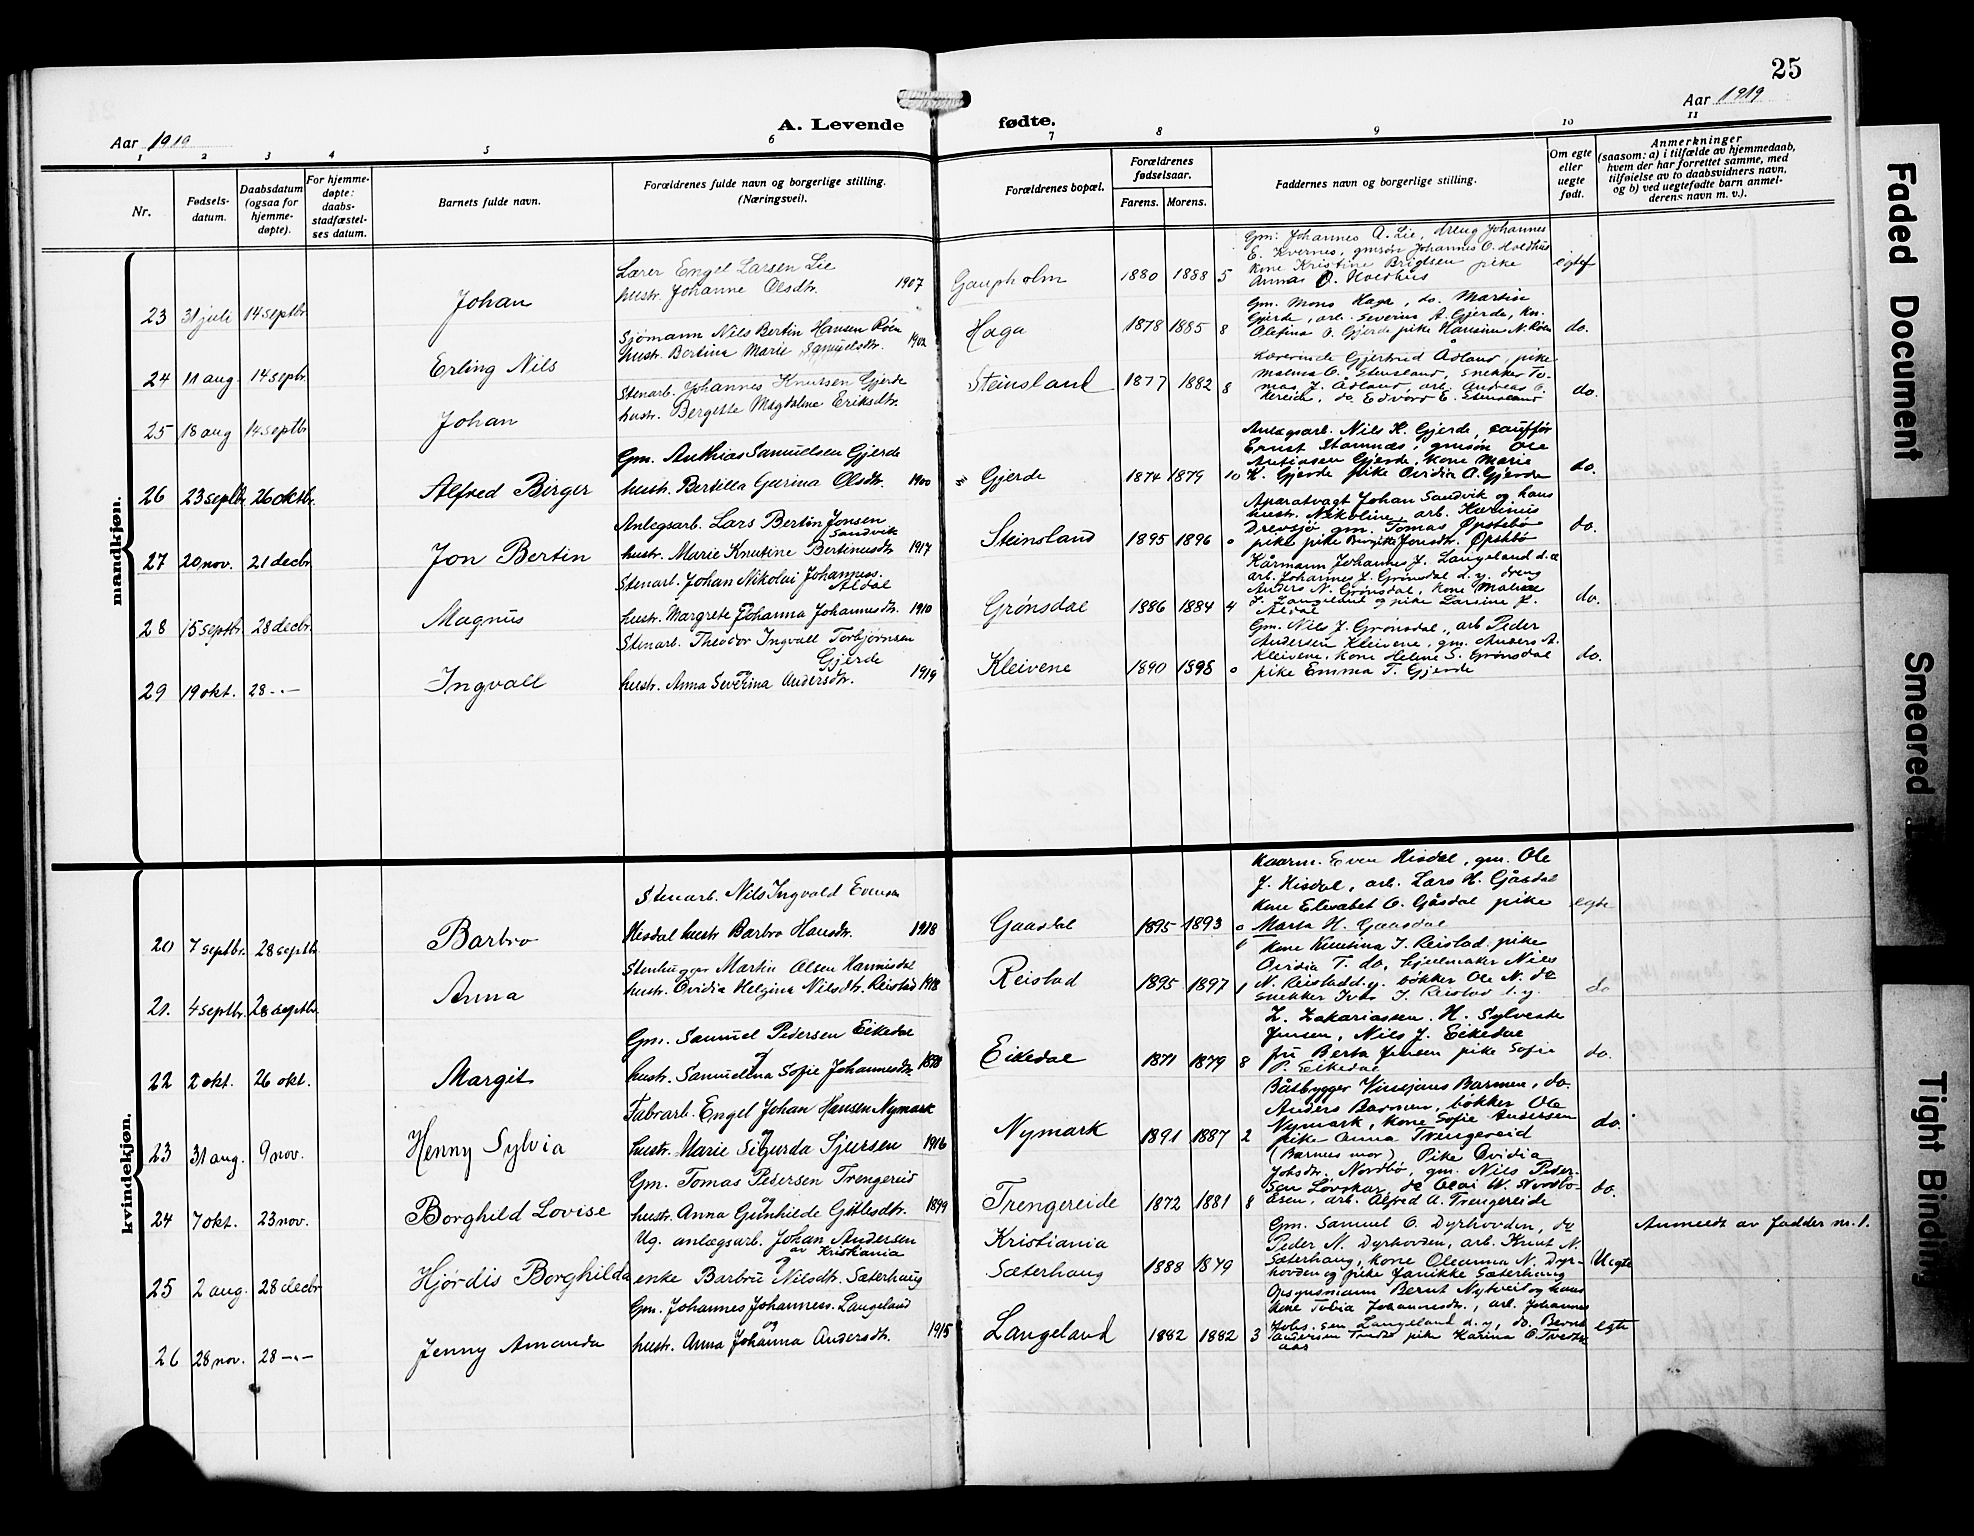 25
Aar 1919
A. Levende fødte.
Aar 1919
1 2 3 4 5 6 7 8 9 10 11
Nr.
Fødsels-
datum.
Daabsdatum
(ogsaa for
hjemme-
døpte).
For hjemme-
døpte:
daabs-
stadfæstel-
ses datum.
Barnets fulde navn.
Forældrenes fulde navn og borgerlige stilling.
(Næringsvei).
Forældrenes bopæl.
Forældrenes
fødselsaar.
Farens. Morens.
Faddernes navn og borgerlige stilling.
Om egte
eller
uegte
født.
Anmerkninger
(saasom: a) i tilfælde av hjemmedaab,
hvem der har forrettet samme, med
tilføielse av to daabsvidners navn,
og b) ved uegtefødte barn anmel-
derens navn m. v.).
mandkjøn.
23 31 juli 14 septbr Johan
Lærer Engel Larsen Lie
hustr. Johanne Olsdtr. 1907
Gaupholm 1880 1888 5
Gm. Johannes A. Lie, dreng Johannes
E. Kvernes, gmsøn Johannes O. Holdhus
kone Kristine Brigtsen pike
Annas O. Holdhus
egtef
24 11 aug. 14 sepbr. Erling Nils
Sjømann Nils Bertin Hansen Røen
hustr. Bertina Marie Samuelsdtr. 1902
Haga 1878 1885 8
Gm. Mons Haga, do. Martin
Gjerde, arb. Severin A. Gjerde, kn.
Olefina O. Gjerde pike Hansine N. Røen
do.
25 18 aug 14 septbr Johan
Stenarb. Johannes Knutsen Gjerde
hustr. Bergitte Magdaline Eriksdtr.
Steinsland 1877 1882 8
Lærerinde Gjertrud Ådland, pike
Malena O. Steinsland, snekker To-
mas J. Ådland, arb. Andreas O.
do. Edvard E. Steinsland
do.
26 23 septbr. 26 oktbr. Alfred Birger
Gm. Anthias Samuelsen Gjerde
hustr. Bertilla Gurina Olsdtr. 1900
Gjerde 1874 1879 10
Anlægsarb. Nils K. Gjerde, sauffør
Ernst Stamnes, gmsøn Ole
Antinsen Gjerde, kone Marie
K. Gjerde pike Ovidia A. Gjerde
do.
27 20 nov. 21 decbr Jon Bertin
Anlegsarb. Lars Bertin Jonsen
Sandvik
hustr. Marie Knutine Bertinusdtr 1917
Steinsland 1895 1896 0
Aparatvagt Johan Sandvik og hans
hustr. Nikoline, arb.
Drevsjø gm. Tomas Øpstebø
pike pike Birgite Jonsdtr. Øpstbø
do.
28 15 septbr. 28 decbr. Magnus
Stenarb. Johan Nikolai Johanness.
Aldal
hustr. Margrete Johanna Johannesdtr. 1910
Grønsdal 1886 1884 4
Kårmann Johannes J. Langeland d.æ
arb. Johannes J. Grønsdal d.y. dreng
Anders N. Grønsdal, kone Malene
J. Langeland og pike Larsine J.
Aldal
do.
29 19 okt. 28 -"- Ingvall
Stenarb. Theodor Ingvall Torbjørnsen
Gjerde
hustr. Anna Severina Andersdtr. 1919
Kleivene 1890 1898 0
Gm. Nils J. Grønsdal, arb Peder
Andersen Kleivene, gm. Anders A.
Kleivene, kone Helene S. Grønsdal
pike Emma T. Gjerde
do.
kvindekjøn.
20 7 septbr. 28 septbr Barbro
Stenarb. Nils Ingvald Evensen
Hisdal hustr Barbro Hansdtr. 1918
Gaasdal 1895 1893 0
Kaarm. Even Hisdal, gm. Ole
J. Hisdal, arb. Lars H. Gåsdal
kone Elisabet O. Gåsdal pike
Marta H. Gaasdal
egte
21. 4 septbr. 28 septbr. Anna
Stenhugger Martin Olsen Hannisdal
hustr. Ovidia Helgina Nilsdtr. Reistad 1918
Reistad 1895 1897 1
Kone Knutina I. Reistad. pike
Ovidia T. do, hjulmaker Nils
N. Reistad d.y. bøkker Ole N. do
snekker Ivar I. Reistad d.y.
do
22 2 okt. 26 okt. Margit
Gm. Samuel Pedersen Eikedal
hustr. Samuelina Sofie Johannesdtr 1898
Eikedal 1871 1879 8
Z. Zakariassen. H. Sylveste
Jensen, Nils J. Eikedal
fru Berta Jensen pike Sofie
P. Eikedal
do.
23 31 aug. 9 nov. Henny Sylvia
Fabrarb. Engel Johan Hansen Nymark
hustr. Marie Sigurda Sjursen 1916
Nymark 1891 1887 2
Båtbygger Vinsjans Barmen, do.
Anders Barmen, bøkker Ole
Nymark, kone Sofie Andersen
pike Anna Trengereid
do.
24 7 okt. 23 nov. Borghild Lovise
Gm. Tomas Pedersen Trengereid
hustr. Anna Gunhilde Gitlesdtr. 1899
Trengereide 1872 1881 8
(Barnets mor) Pike Ovidia
Johsdtr. Nordbø, gm. Nils Peder-
sen Løvskar, do Olai W. Nordbo-
åsen, arb. Alfred A. Trengereide
do.
25 2 aug. 28 decbr Hjørdis Borghilda
Ug. anlægsarb. Johan Andersen
av Kristiania
enke Barbru Nilsdtr. Sæterhaug
Kristiania
Sæterhaug 1888 1879
Gm. Samuel O. Dyrhovden, do
Peder N. Dyrhovden, arb. Knut N.
Sæterhaug, kone Oleanna N. Dyr-
hovden og pike Janikke Sæterhaug
Uegte
Anmeldt av fadder nr. 1.
26 28 nov. 28 -"- Jenny Amanda
Gm. Johannes Johannesn. Langeland
hustr. Anna Johanna Andersdtr. 1915
Langeland 1882 1882 3
Opsynsmann Bernt Nytveit og hans
kone Tobia Johannesdtr., arb. Johannes
Johs. sen Langeland d.y., do. Bernt
Andersen Tveit pike Karina O. Tveter-
aas
egte
Faded Document
Smeared
Tight Binding